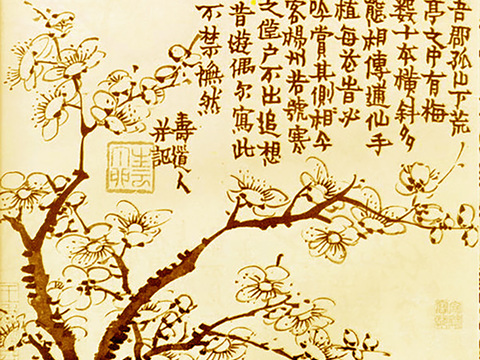 吾郡孤山下荒
亭文中有梅
數十本橫斜多
態相傳逋仙手
植每 昔必
吟賞其側相今
客揚州若號寒
之堂戶不出追想
昔遊偶尔寫此
不禁憮然
壽道人
并記